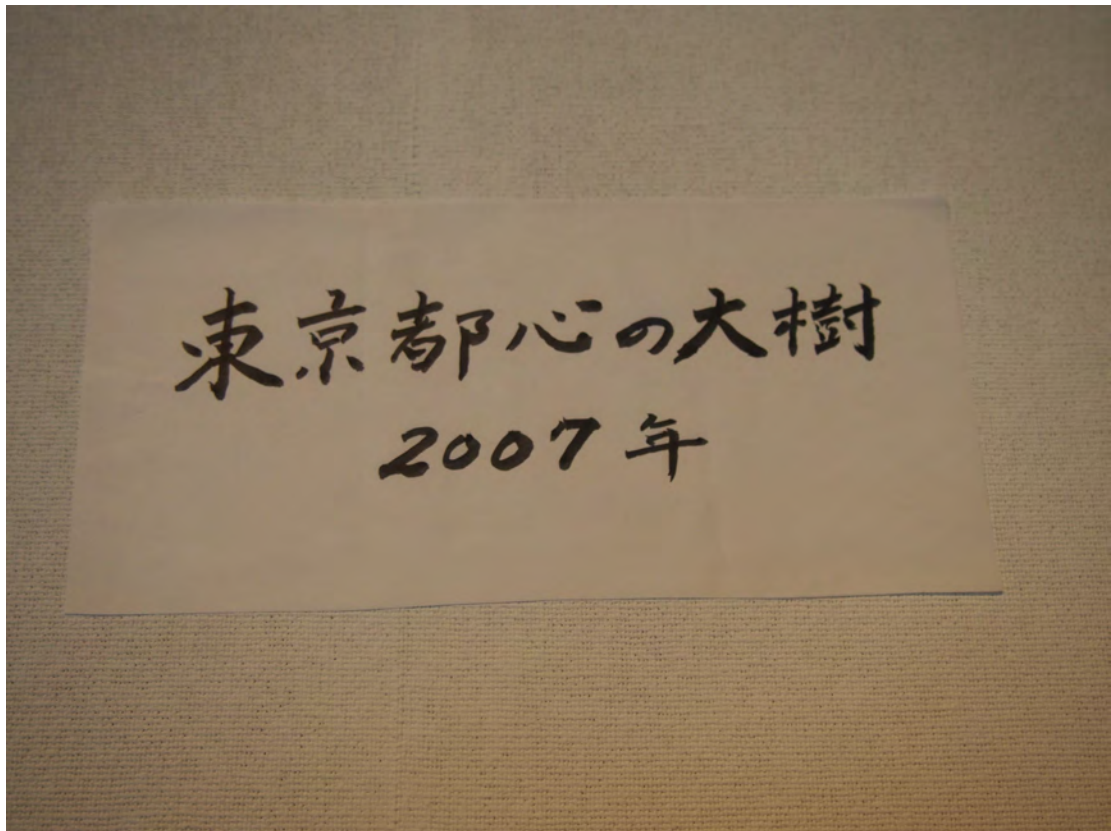 東京都心の大樹
2007年